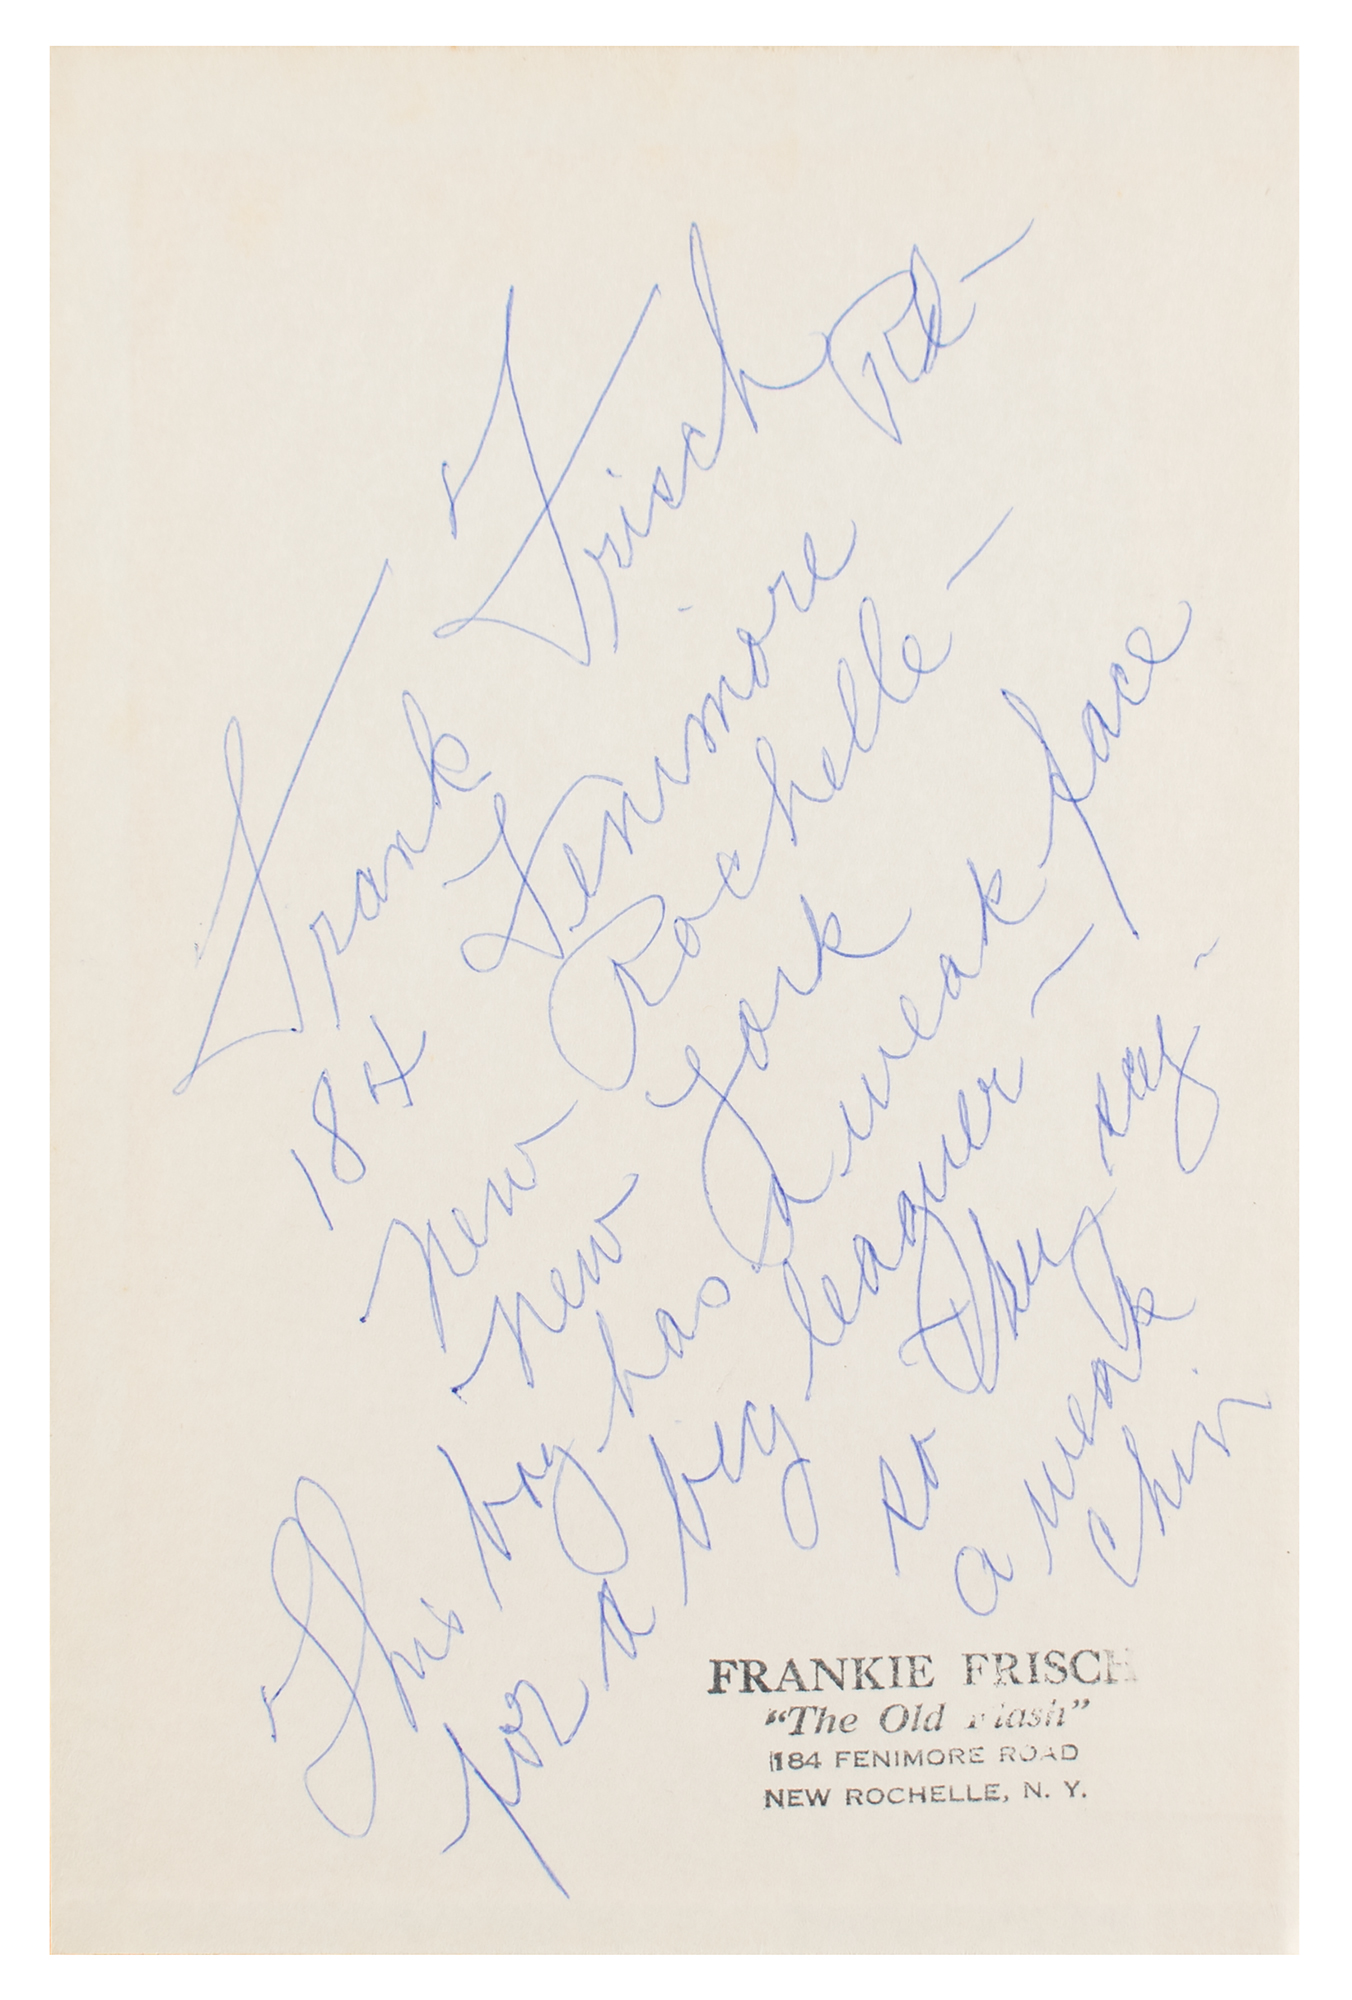 Frank Frisch
184 Fenimore Rd-
New Rochelle -
New York
This boy has a weak face
for a big leaguer -
so they say -
a weak
chin
FRANKIE FRISCH
"The Old Flash"
184 FENIMORE ROAD
NEW ROCHELLE, N. Y.